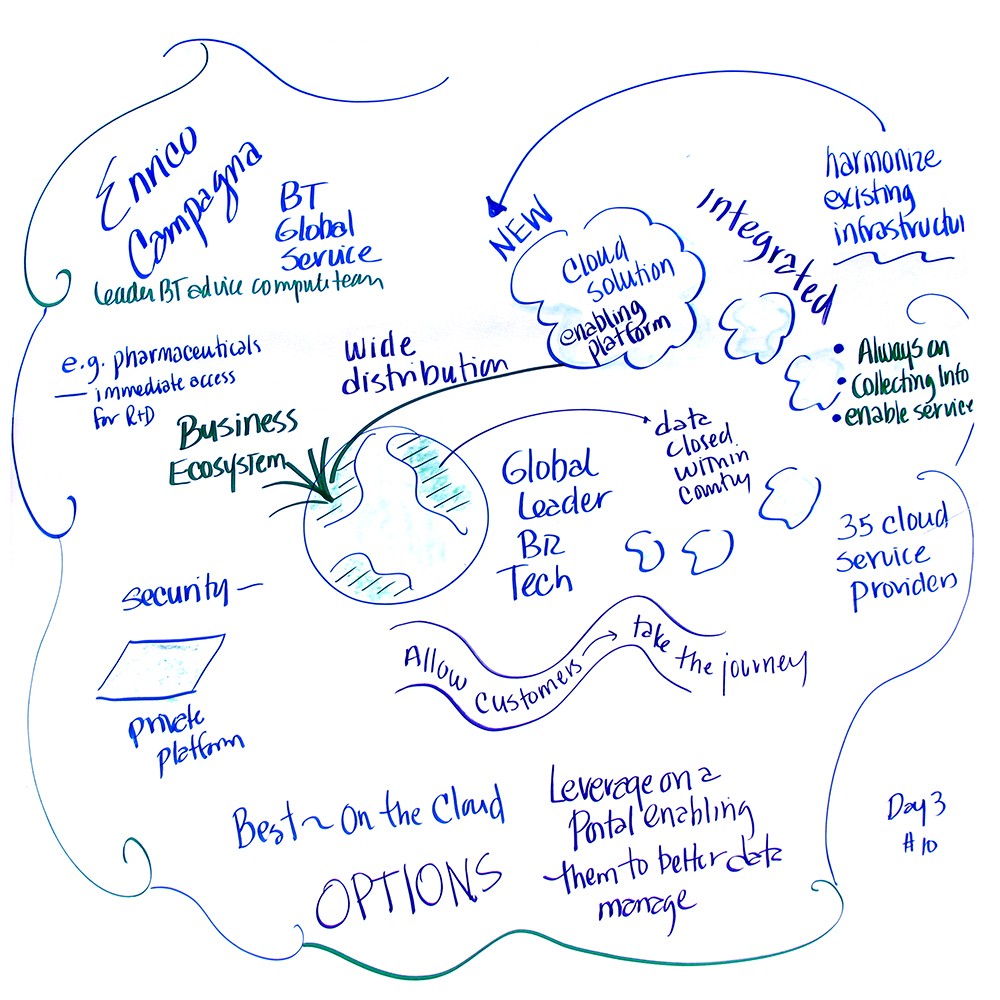 Enrico
Compagna
BT
Global
Service
leader BT advice compute team
e.g. pharmaceuticals
— immediate access
for R+D
Wide
distribution
Business
Ecosystem
NEW
Cloud
solution
enabling
platform
Integrated
harmonize
existing
infrastructur
• Always on
• Collecting Info
• enable service
data
closed
within
country
Global
Leader
BR
Tech
35 cloud
service
providers
security —
private
platform
Allow customers → take the journey
Best ~ On the Cloud
OPTIONS
Leverage on a
Portal enabling
them to better data
manage
Day 3
#10